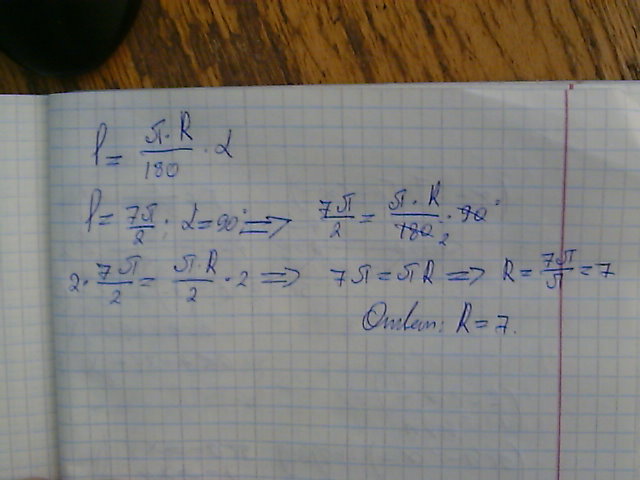 l = π·R/180 · α
l = 7π/2; α = 90° ⇒ 7π/2 = π·R/180 2 · 90°
2· 7π/2 = π·R/2 ·2 ⇒ 7π = πR ⇒ R = 7π/π = 7
Ответ: R = 7.